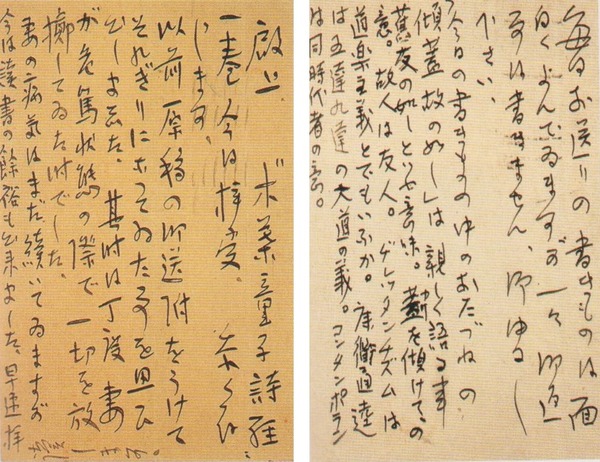 毎日お送りの書きものは面
白くよんでゐますが一々御返
事は書けません、御ゆるし
下さい、
今日の書きものの中のおたづねの
「傾蓋故の如し」は親しく語る事
旧友の如しといふ意味。蓋を傾けての
意。故人は友人。ヂレッタンチズムは
道楽主義とでもいふか。康衢通逵
は五達九達の大道の義。コンタンポラン
は同時代者の意。
啓上 木葉童子詩経
一巻今日拝受、
じます、
以前原稿の御送附をうけて
それぎりになつてゐた事を思ひ
出しました。其時は丁度妻
が危篤状態の際で一切を放
擲してゐた時でした。
妻の病気はまだ続いてゐますが
今は読書の餘裕も出来ました。早速拝